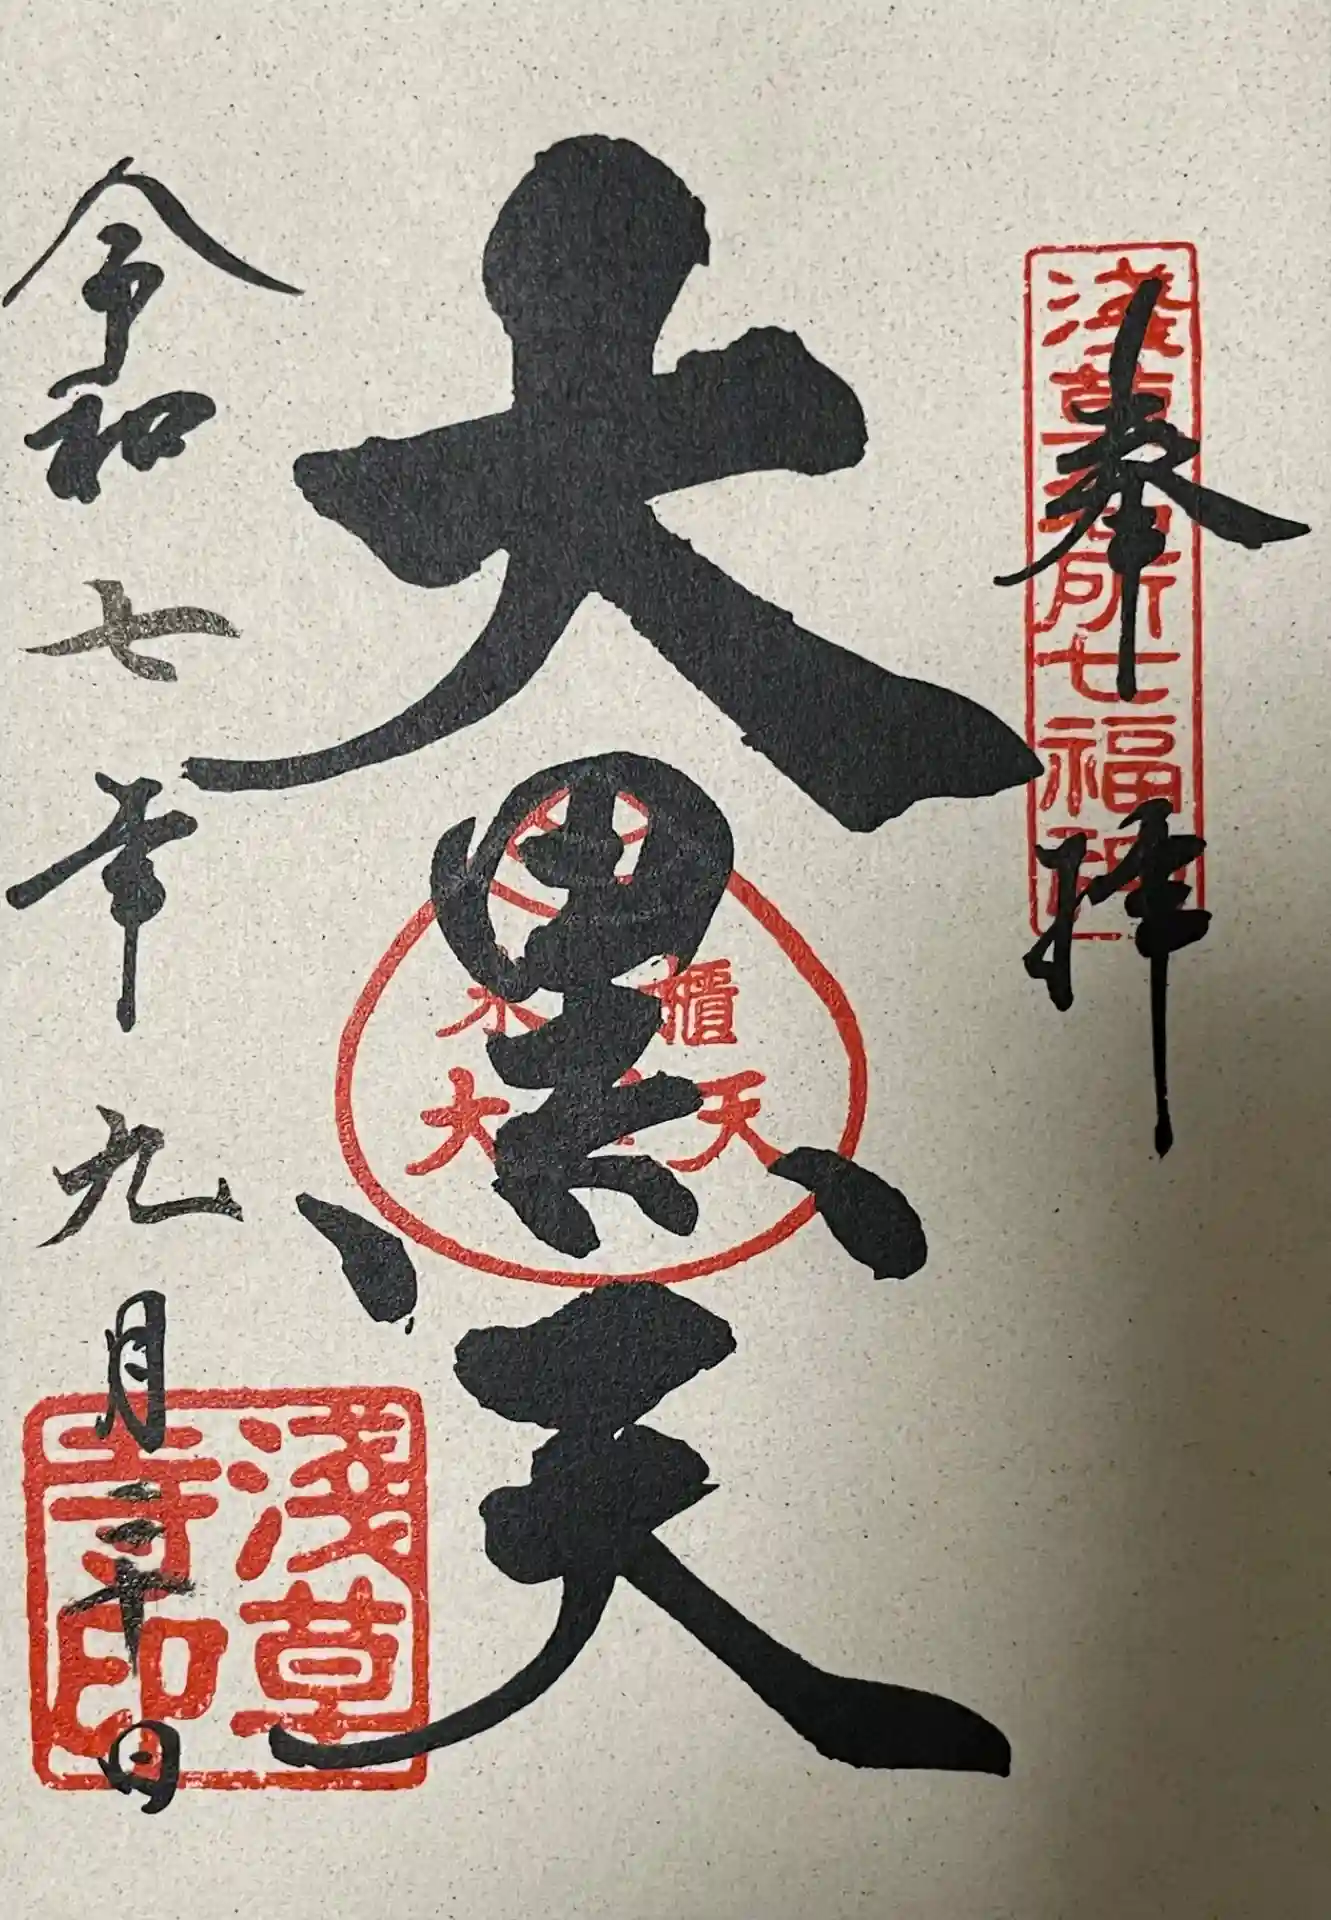 奉拝
淺草名所七福神
大黒天
米櫃
大黒天
令和七年九月三十日
淺草
寺印